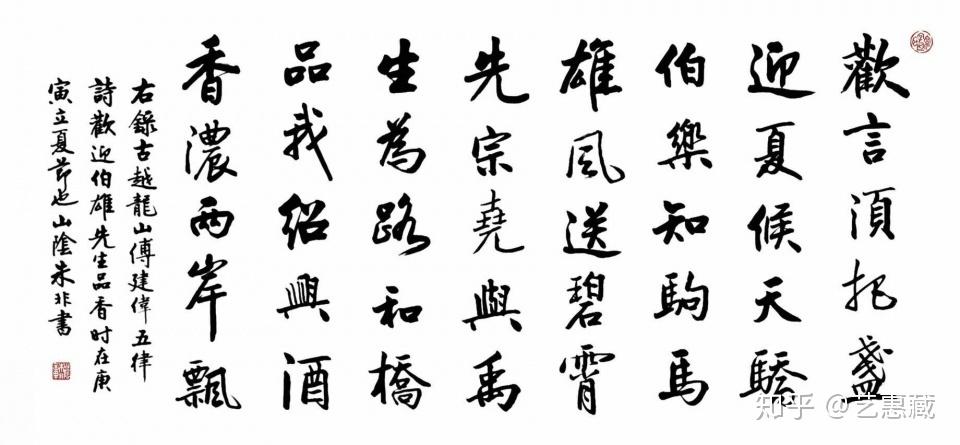 歡言須把盞
迎夏候天驕
伯樂知駒馬
雄風送碧霄
先宗堯與禹
生為路和橋
品我紹興酒
香濃兩岸飄
右錄古越龍山傅建偉五律
詩歡迎伯雄先生品香时在庚
寅立夏節也山陰朱非書
知乎 @艺惠藏